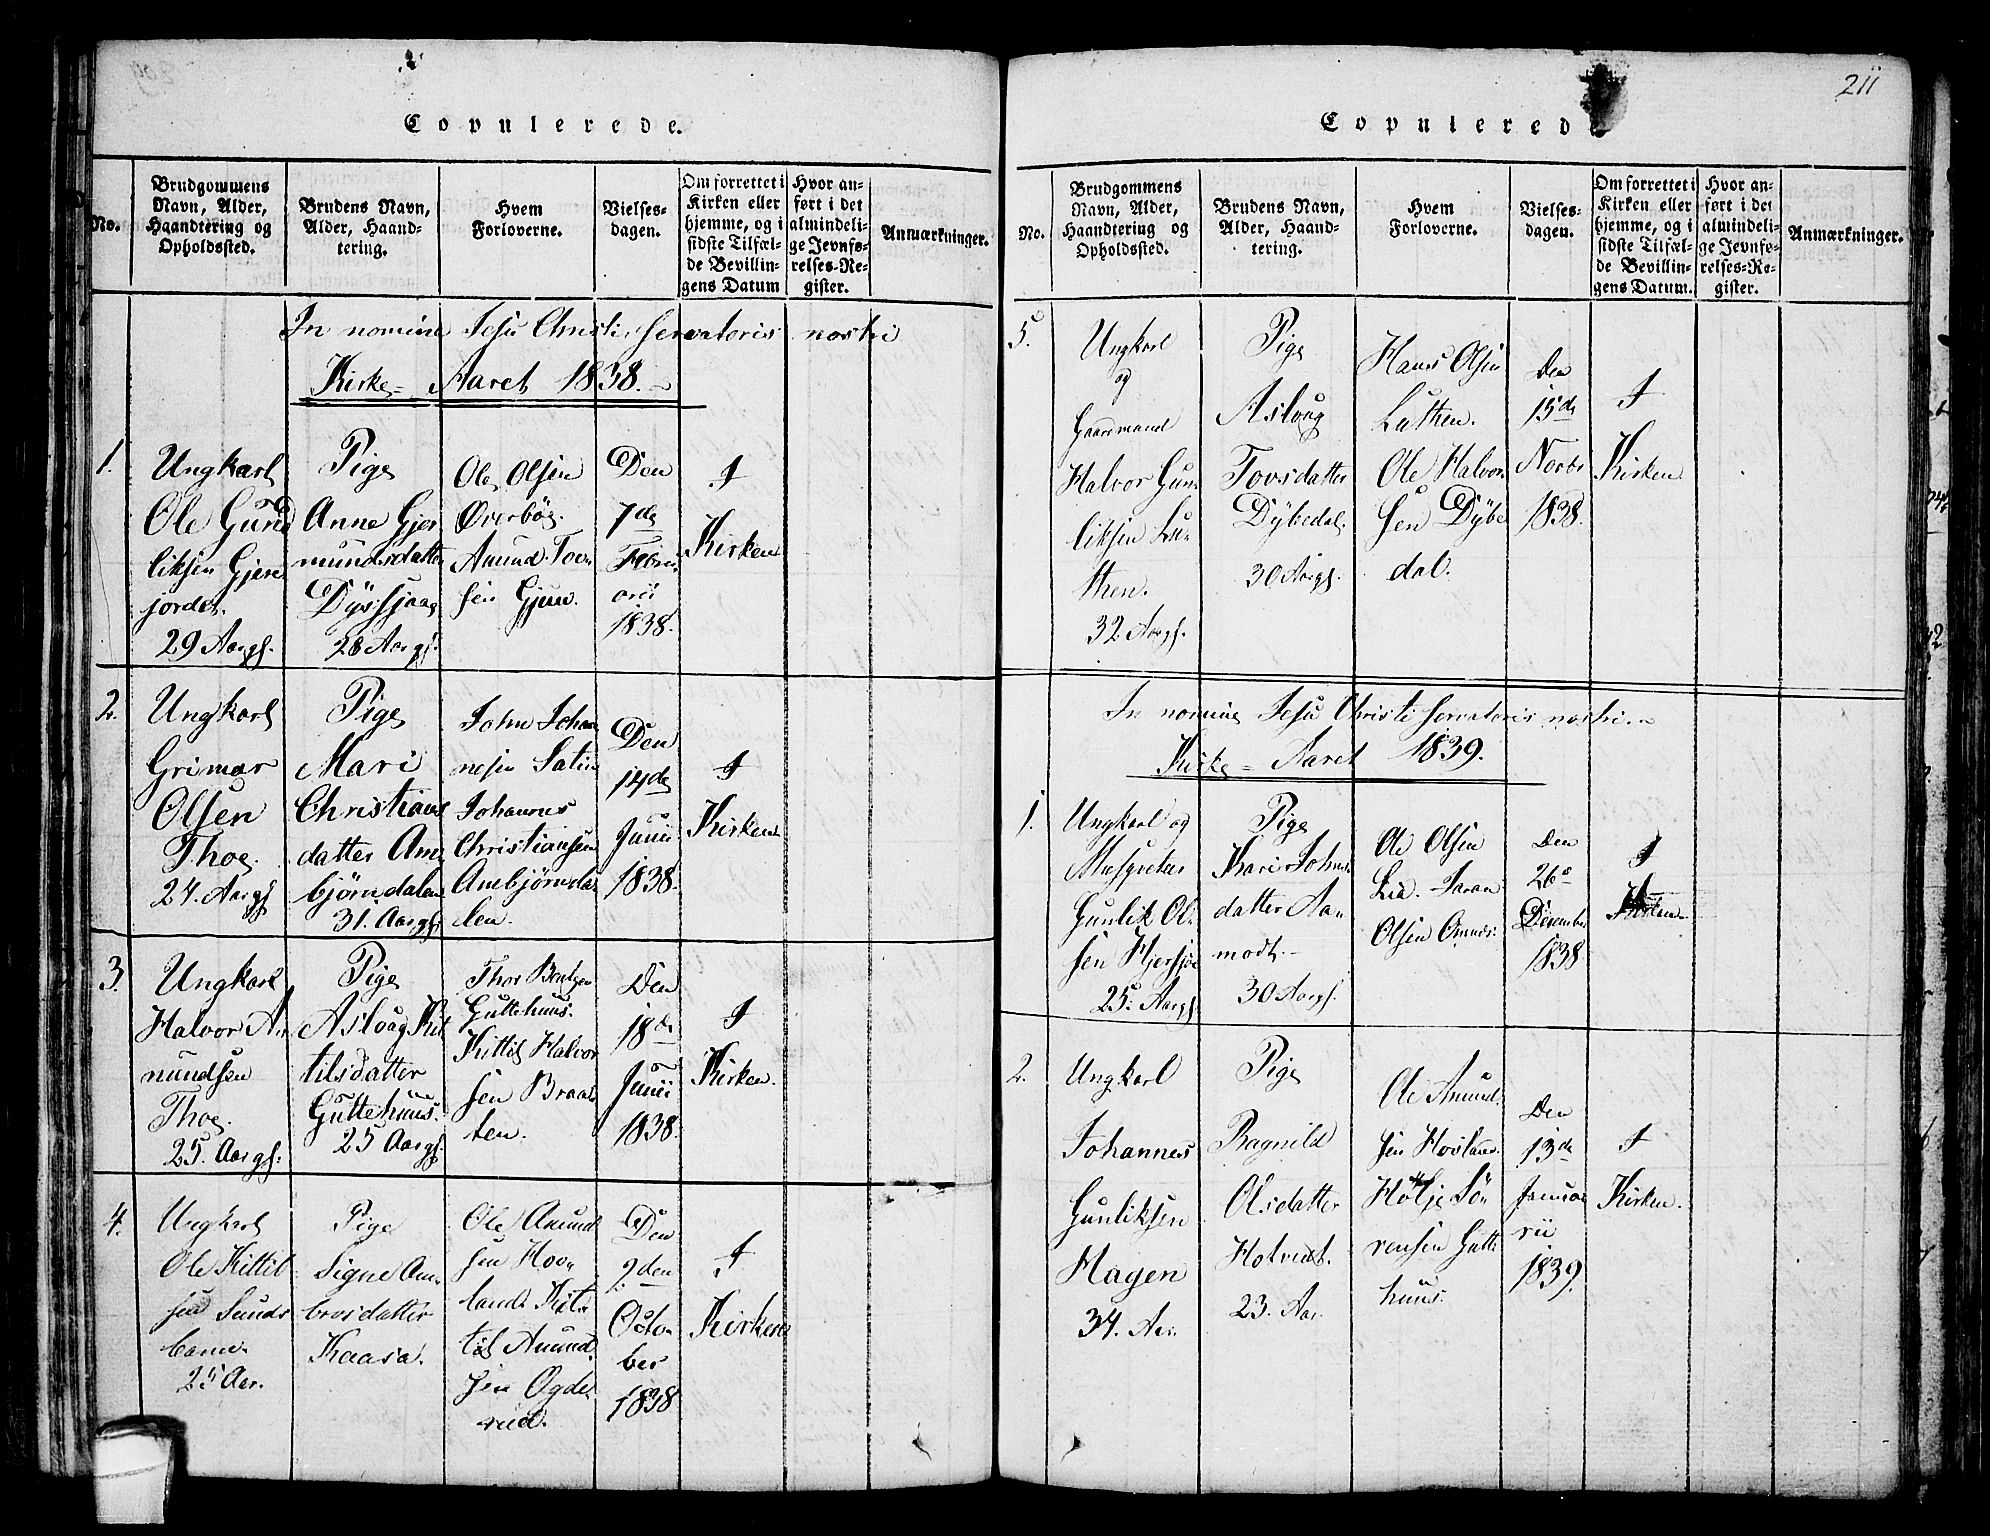 Copulerede.
No.
Brudgommens
Navn, Alder,
Haandtering og
Opholdssted.
Brudens Navn,
Alder, Haand-
tering.
Hvem
Forloverne.
Vielses-
dagen.
Om forrettet i
Kirken eller
hjemme, og i
sidste Tilfæl-
de Bevillin-
gens Datum
Hvor an-
ført i det
almindeli-
ge Jevnfø-
relses-Re-
gister.
Anmærkninger.
In nomine Jesu Christi servatoris nostri
Kirke-Aaret 1838.
1.
Ungkarl
Ole Gund
liksen Gjere
jordet.
29 Aarg.
Pige
Anne Gjer
mundsdatter
Dyssjaag
28 Aarg.
Ole Olsen
Øverbøe.
Amund Tov
sen Gjuve.
Den
7de
Febru
arii
1838.
I
Kirken
2.
Ungkarl
Grimar
Olsen
Thoe.
24. Aarg.
Pige
Mari
Christians
datter Am
bjørndalen
31. Aarg.
John Johan
nesen Satin
Johannes
Christiansen
Ambjørnda
len.
Den
14de
Junii
1838.
I
Kirken
3.
Ungkarl
Halvor A
mundsen
Thoe.
25. Aarg.
Pige
Asloug Kit
tilsdatter
Guttehuus.
25 Aarg.
Thor Bentsen
Guttehuus.
Kittil Halvor
sen Braa
ten.
Den
18de
Junii
1838.
I
Kirken.
4.
Ungkarl
Ole Kittil
sen Sunds
25 Aar.
Pige
Signe Am
brosdatter
Kaasa.
Ole Amund
sen Hov
land. Kit
til Amund
sen Ogde
rud.
Den
2den
Octo
ber
1838
I
Kirken
211
Copulerede
No.
Brudgommens
Navn, Alder,
Haandtering og
Opholdssted.
Brudens Navn,
Alder, Haand-
tering.
Hvem
Forloverne.
Vielses-
dagen.
Om forrettet i
Kirken eller
hjemme, og i
sidste Tilfæl-
de Bevillin-
gens Datum.
Hvor an-
ført i det
almindeli-
ge Jevnfø-
relses-Re-
gister.
Anmærkninger.
5.
Ungkarl
og
Gaardmand
Halvor Gun
liksen Lu-
then.
32. Aarg.
Pige
Asloug
Tovsdatter
Dybedal.
30 Aarg.
Hans Olsen
Luthen.
Ole Halvor
sen Dybe
dal.
Den
15de
Novbr
1838.
I
Kirken
In nomine Jesu Christi servatoris nostri.
Kirke-Aaret 1839.
1.
Ungkarl og
Musqueteer
Gunlik Ol
sen Hjersjøe
25. Aarg.
Pige
Kari Johns
datter Aa-
modt.
30 Aarg.
Ole Olsen
Lie.
Olsen
Den
26de
December
1838
I
Kirken
2.
Ungkarl
Johannes
Gunliksen
Hagen
34. Aar.
Pige
Ragnild
Olsdatter
Holtvedt.
23. Aar.
Ole Amund
sen Hovland.
Høljе Sø
rensen Gutte
huus.
Den
13de
Janua
rii
1839.
I
Kirken.